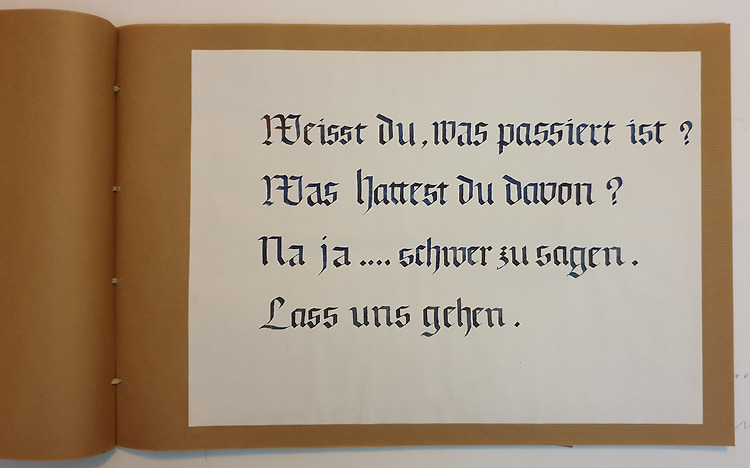 Weisst du, was passiert ist ?
Was hattest du davon ?
Na ja .... schwer zu sagen.
Lass uns gehen.